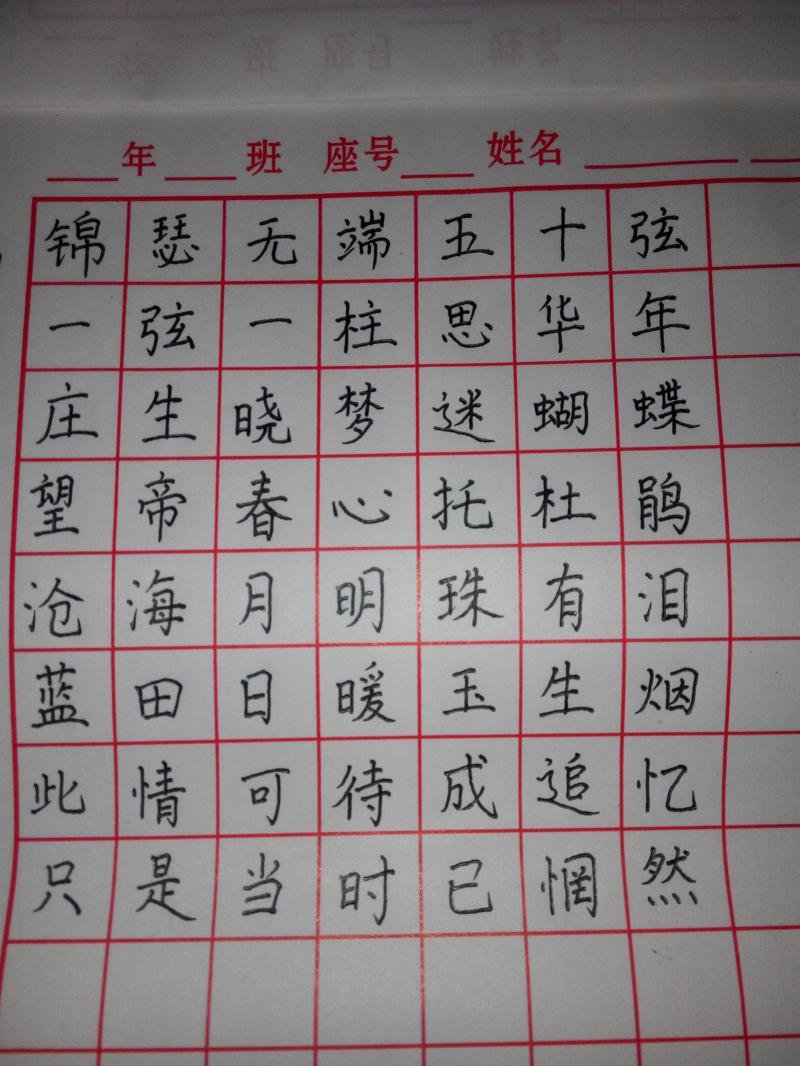 年 班 座号 姓名
锦瑟无端五十弦
一弦一柱思华年
庄生晓梦迷蝴蝶
望帝春心托杜鹃
沧海月明珠有泪
蓝田日暖玉生烟
此情可待成追忆
只是当时已惘然